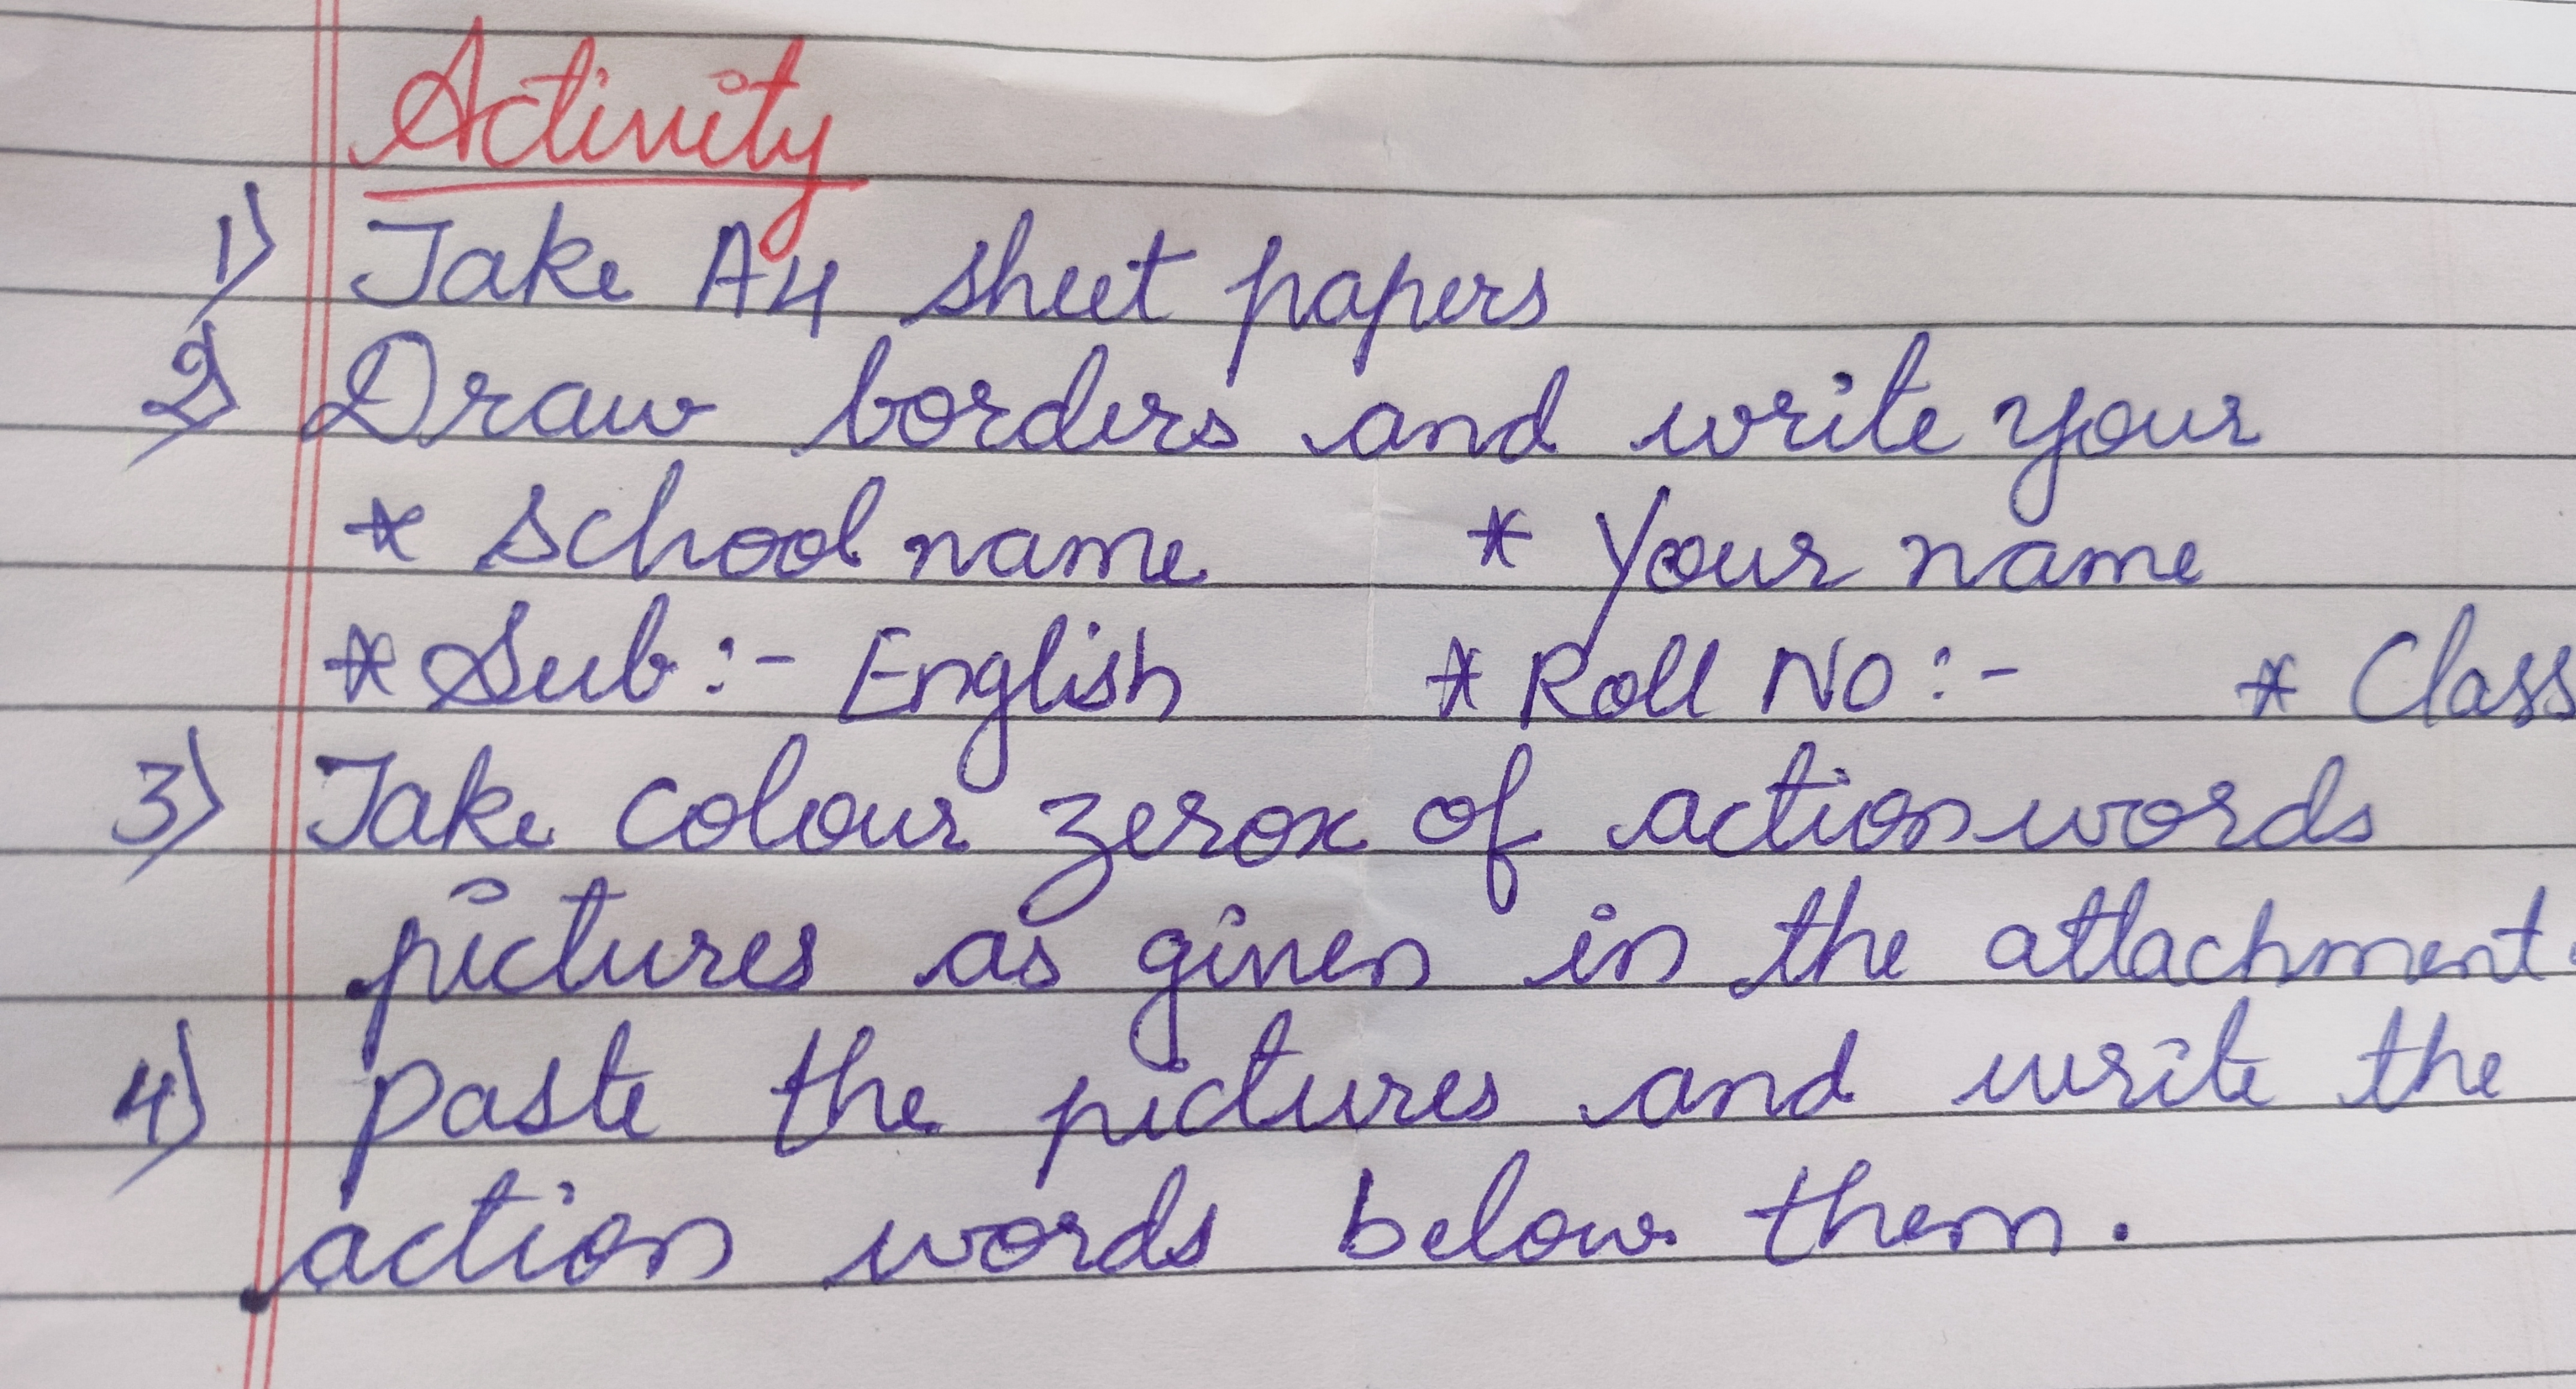 Activity
1) Take A4 sheet papers
2) Draw borders and write your
* School name * Your name
* Sub :- English * Roll No :- * Class
3) Take colour zerox of action words
pictures as given in the attachment.
4) paste the pictures and write the
action words below them.